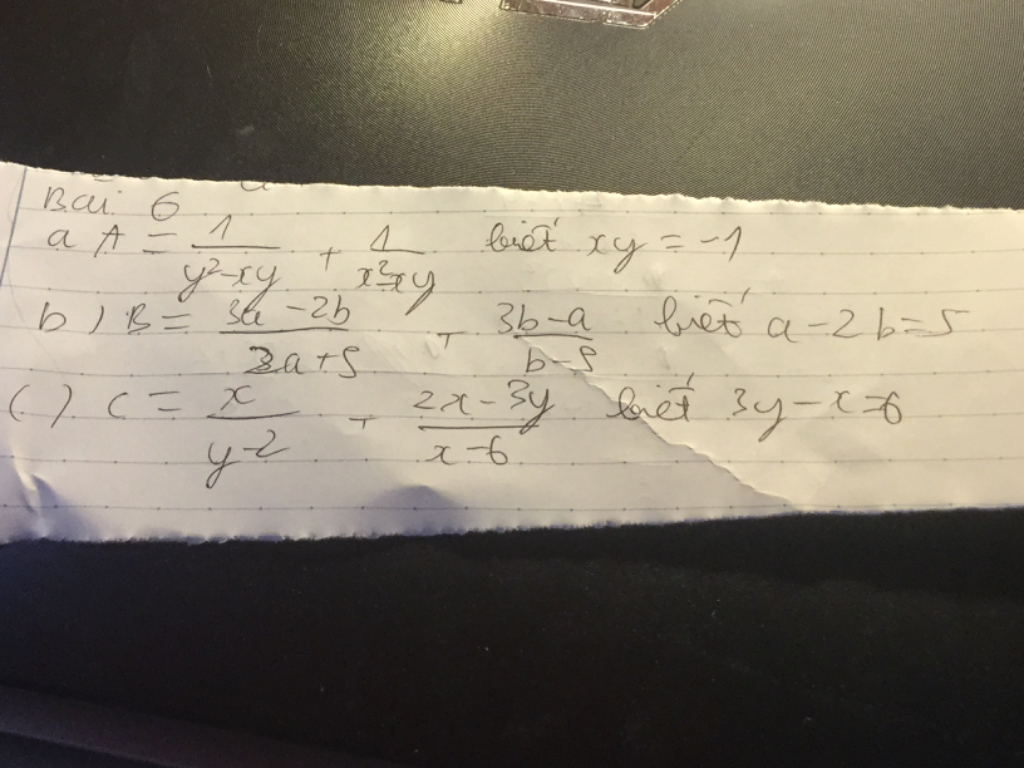 Bài 6
a A = 1/(y²-xy) + 1/(x²-xy) biết xy = -1
b) B = (3a-2b)/(2a+5) + (3b-a)/(b-5) biết a-2b=5
c) C = x/(y-2) + (2x-3y)/(x-6) biết 3y-x=6